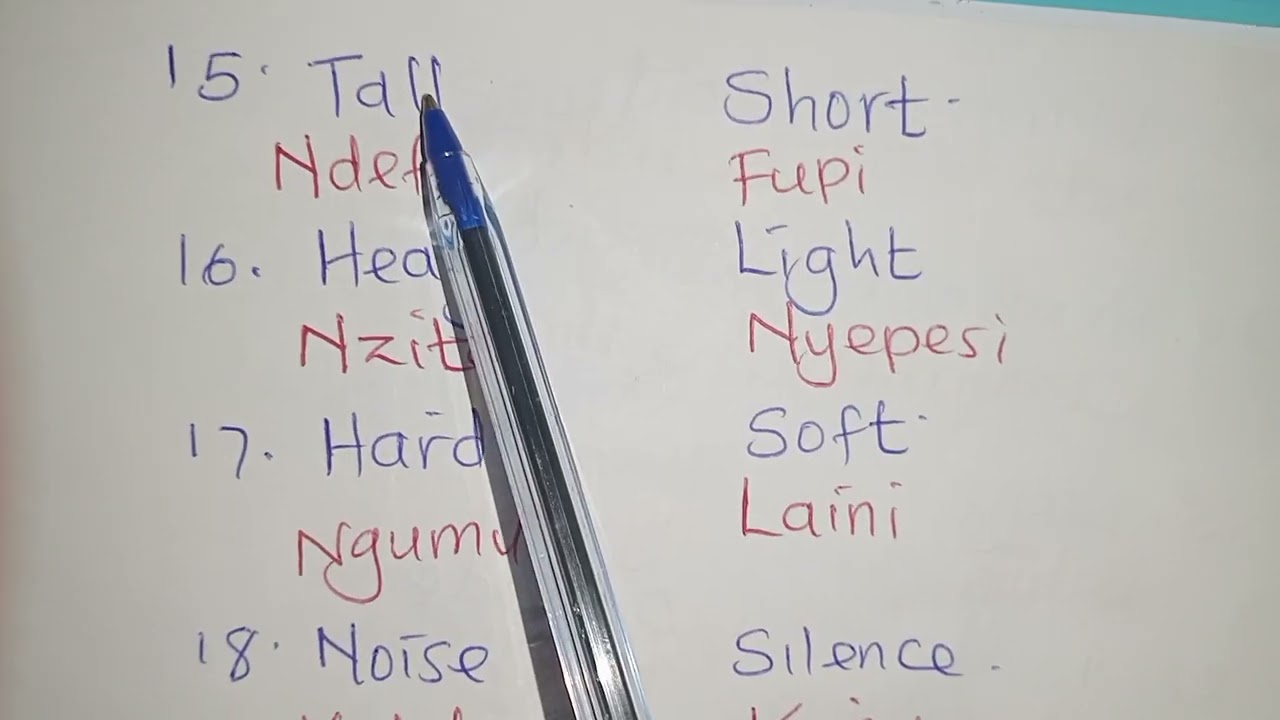 15. Tall Short.
Fupi
16. Light
Nyepesi
17. Hard Soft.
Ngumu Laini
18. Noise Silence.